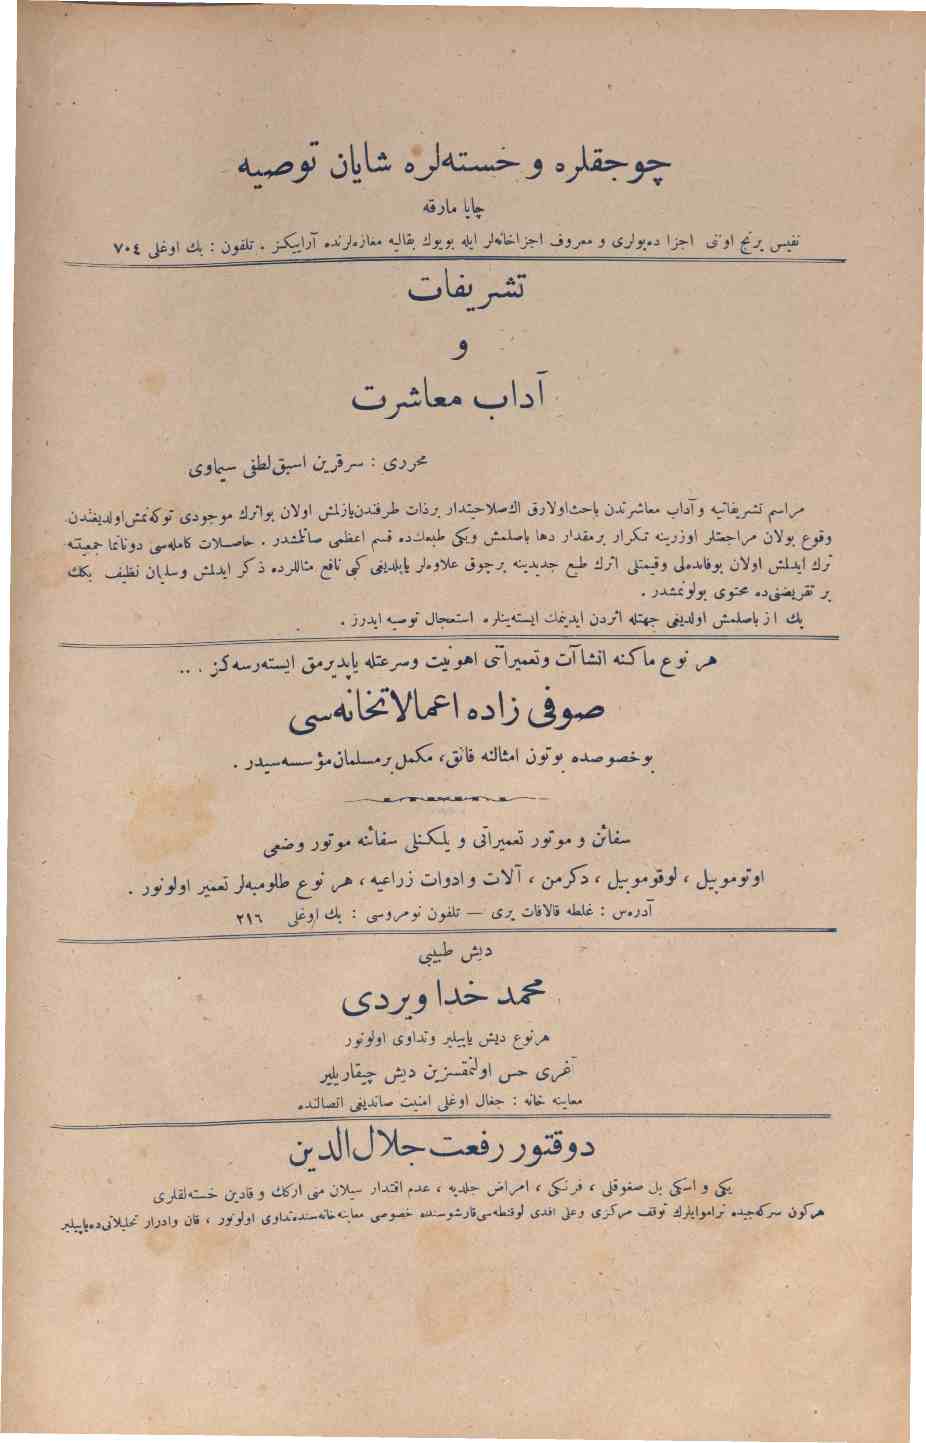 چوجقلره و خسته‌لره شایان توصیه
چاپا مارقه
نفیس پرنج اونی اجزا ده‌پولری و معروف اجزاخانه‌لر ایله بویوك بقالیه مغازه‌لرنده آراییکز . تلفون : بك اوغلی ٧٠٤
تشریفات
و
آداب معاشرت
محرری : سرقرین اسبق لطفی سیماوی
مراسم تشریفاتیه و آداب معاشرتدن باحث اولارق اك صلاحیتدار برذات طرفندن یازلمش اولان بو اثرك موجودی توکه‌نمش اولدیغندن
وقوع بولان مراجعتلر اوزرینه تکرار برمقدار دها باصلمش ویکی طبعك‌ده قسم اعظمی صاتلمشدر . حاصلات کامله‌سی دونانما جمعیتنه
ترك ایدلمش اولان بوفائده‌لی وقیمتلی اثرك طبع جدیدینه برچوق علاوه‌لر یاپلدیغی کبی نافع مثاللرده ذکر ایدلمش وسلیمان نظیف بكك
بر تقریضنی‌ده محتوی بولونمشدر .
بك از باصلمش اولدیغی جهتله اثردن ایدینمك ایسته‌ینلره استعجال توصیه ایدرز .
هر نوع ماکنه انشاآت وتعمیراتنی اهونیت وسرعتله یاپدیرمق ایسته‌رسه‌کز . ..
صوفی زاده اعمالاتخانه‌سی
بوخصوصده بوتون امثالنه فائق، مکمل برمسلمان مؤسسه‌سیدر .
سفائن و موتور تعمیراتی و یلکنلی سفائنه موتور وضعی
اوتوموبیل ، لوقوموبیل ، دکرمن ، آلات وادوات زراعیه ، هر نوع طلومبه‌لر تعمیر اولونور .
آدره‌س : غلطه قالافات یری — تلفون نومروسی : بك اوغلی ٢١٦
دیش طبیبی
محمد خدا ویردی
هرنوع دیش یاپیلیر وتداوی اولونور
آغری حس اولنمقسزین دیش چیقاریلیر
معاینه خانه : جغال اوغلی امنیت صاندیغی اتصالنده
دوقتور رفعت جلال‌الدین
یکی و اسکی بل صغوقلغی ، فرنکی ، امراض جلدیه ، عدم اقتدار سیلان منی ارکك و قادین خسته‌لقلری
هرکون سرکه‌جیده تراموایلرك توقف مرکزی وعلی افندی لوقنطه‌سی قارشوسنده خصوصی معاینه‌خانه‌سنده تداوی اولونور ، قان وادرار تحلیلاتی‌ده یاپیلیر